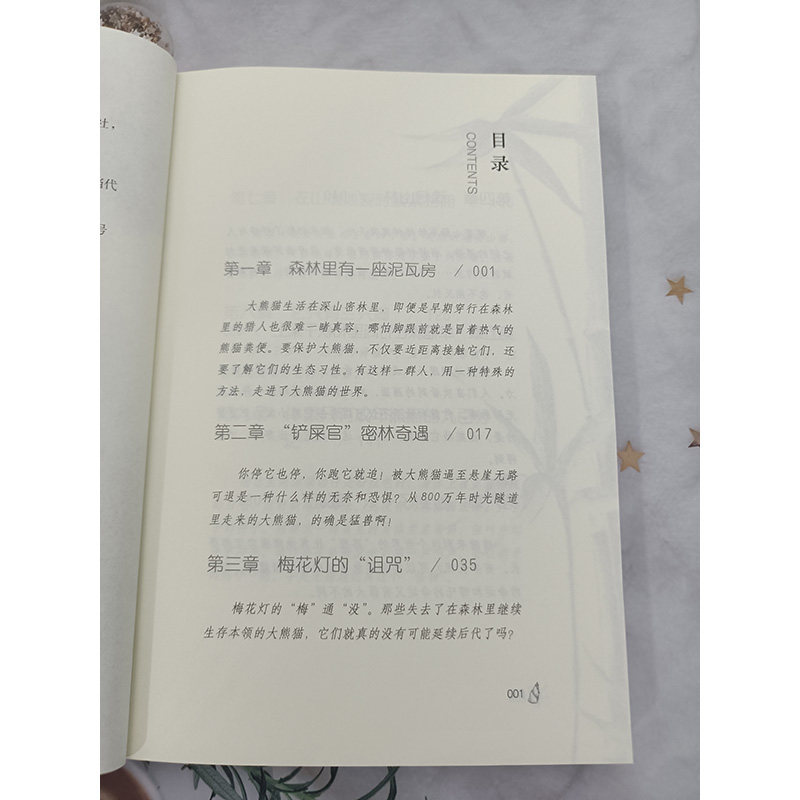 社，
当代
号
目录
CONTENTS
第一章 森林里有一座泥瓦房 / 001
大熊猫生活在深山密林里，即便是早期穿行在森林
里的猎人也很难一睹真容，哪怕脚跟前就是冒着热气的
熊猫粪便。要保护大熊猫，不仅要近距离接触它们，还
要了解它们的生态习性。有这样一群人，用一种特殊的
方法，走进了大熊猫的世界。
第二章 “铲屎官”密林奇遇 / 017
你停它也停，你跑它就追！被大熊猫逼至悬崖无路
可退是一种什么样的无奈和恐惧？从800万年时光隧道
里走来的大熊猫，的确是猛兽啊！
第三章 梅花灯的“诅咒” / 035
梅花灯的“梅”通“没”。那些失去了在森林里继续
生存本领的大熊猫，它们就真的没有可能延续后代了吗？
001